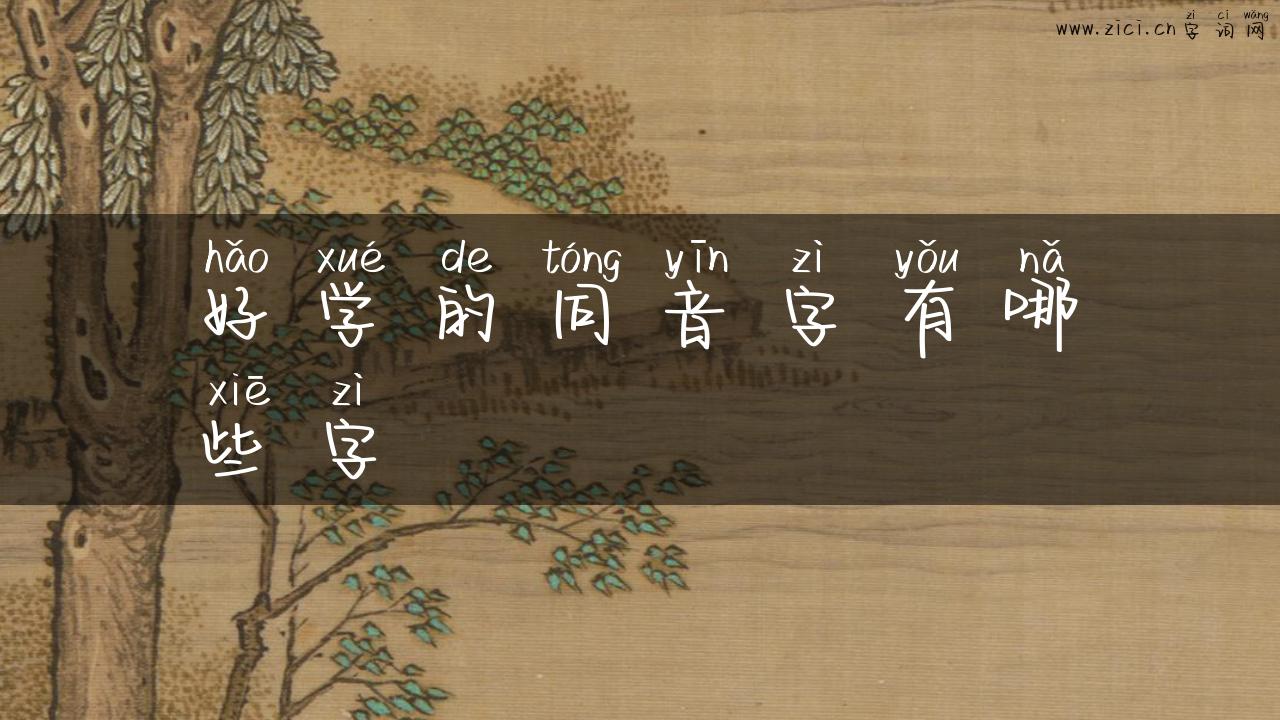 zì cí wǎng
www.zici.cn 字 词 网
hǎo xué de tóng yīn zì yǒu nǎ
好 学 的 同 音 字 有 哪
xiē zì
些 字